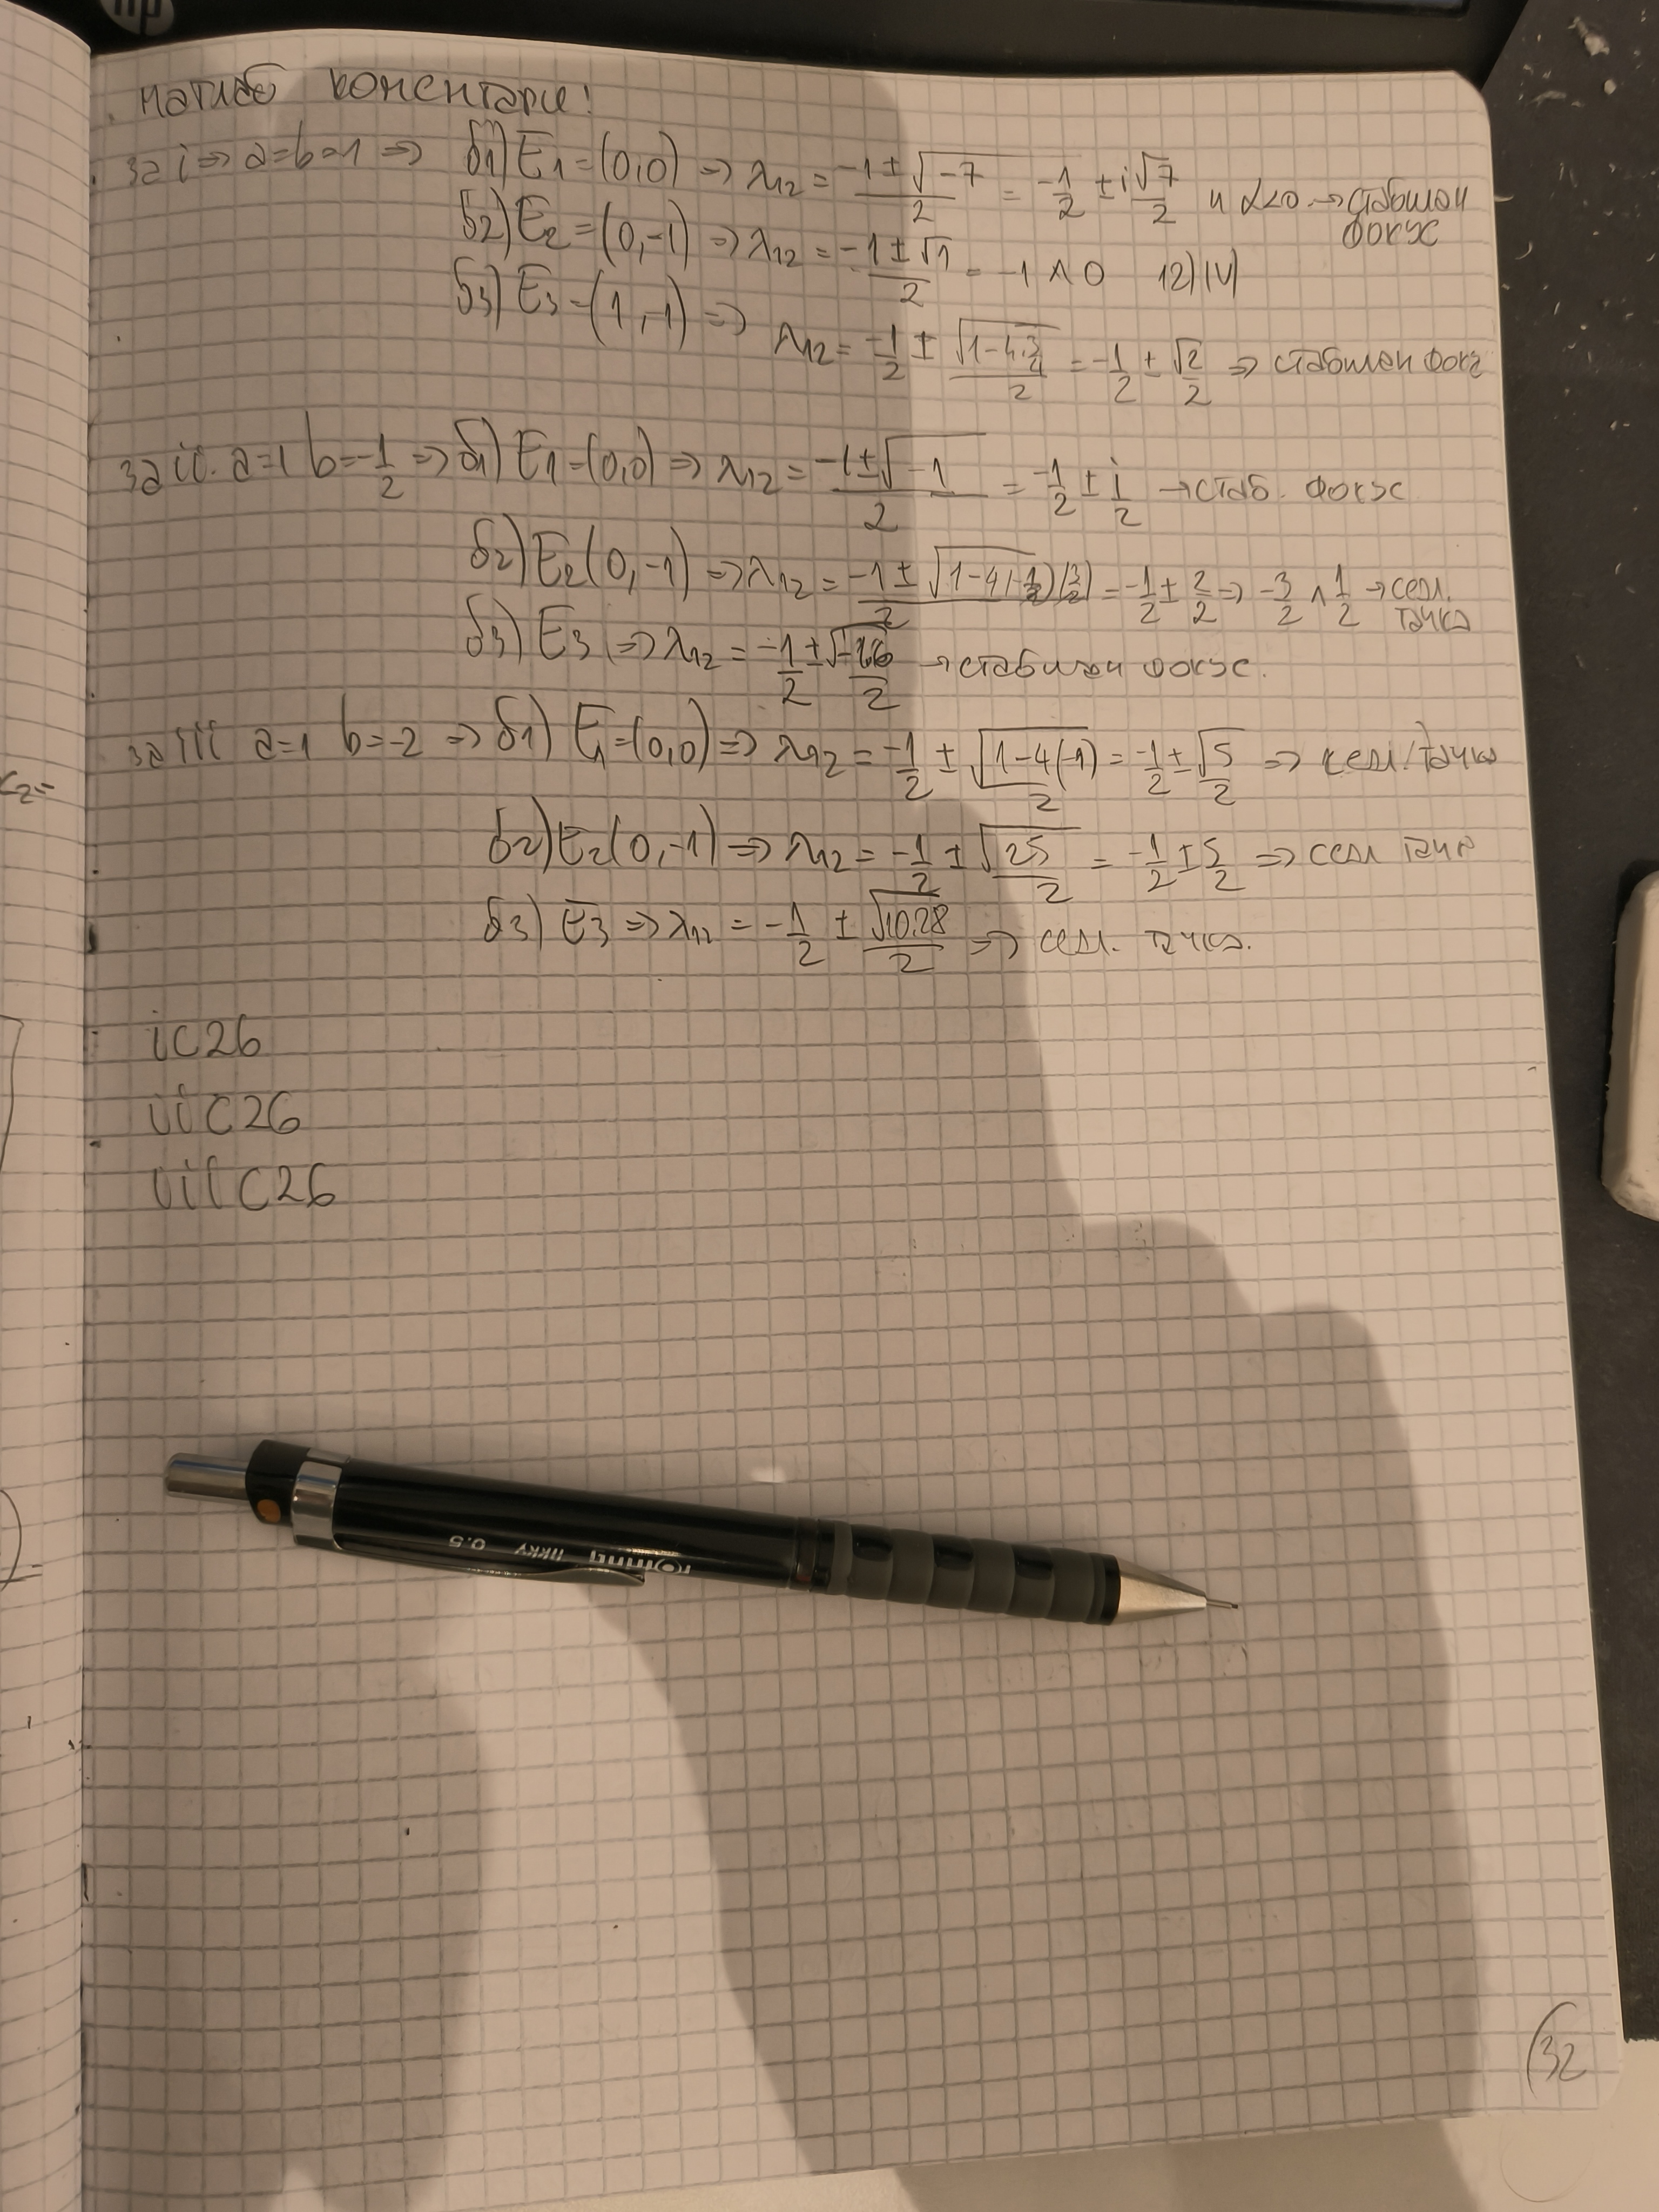 hp
матлаб коментари!
за i => a=b=1 => б1) E1=(0,0) => λ12 = (-1±√-7)/2 = -1/2 ± i√7/2 и α<0 → стабилен фокус
б2) E2=(0,-1) => λ12 = (-1±√1)/2 = -1 ∧ 0 12)IV)
б3) E3=(1,-1) => λ12 = -1/2 ± √(1-4·3/4)/2 = -1/2 ± √2/2 => стабилен фокус
за ii. a=1 b=-1/2 => б1) E1=(0,0) => λ12 = (-1±√-1)/2 = -1/2 ± i/2 → стаб. фокус
б2) E2(0,-1) => λ12 = (-1±√(1-4(-1/2)(3/2)))/2 = -1/2 ± 2/2 => -3/2 ∧ 1/2 → седл. точка
б3) E3 => λ12 = -1/2 ± /2 → стабилен фокус.
за iii a=1 b=-2 => б1) E1=(0,0) => λ12 = -1/2 ± √(1-4(-1))/2 = -1/2 ± √5/2 => седл. точка
б2) E2(0,-1) => λ12 = -1/2 ± √25/2 = -1/2 ± 5/2 => седл точк
б3) E3 => λ12 = -1/2 ± √10.28/2 => седл. точка.
ic26
iic26
iiic26
c2=
rotring TIKKY 0.5
32